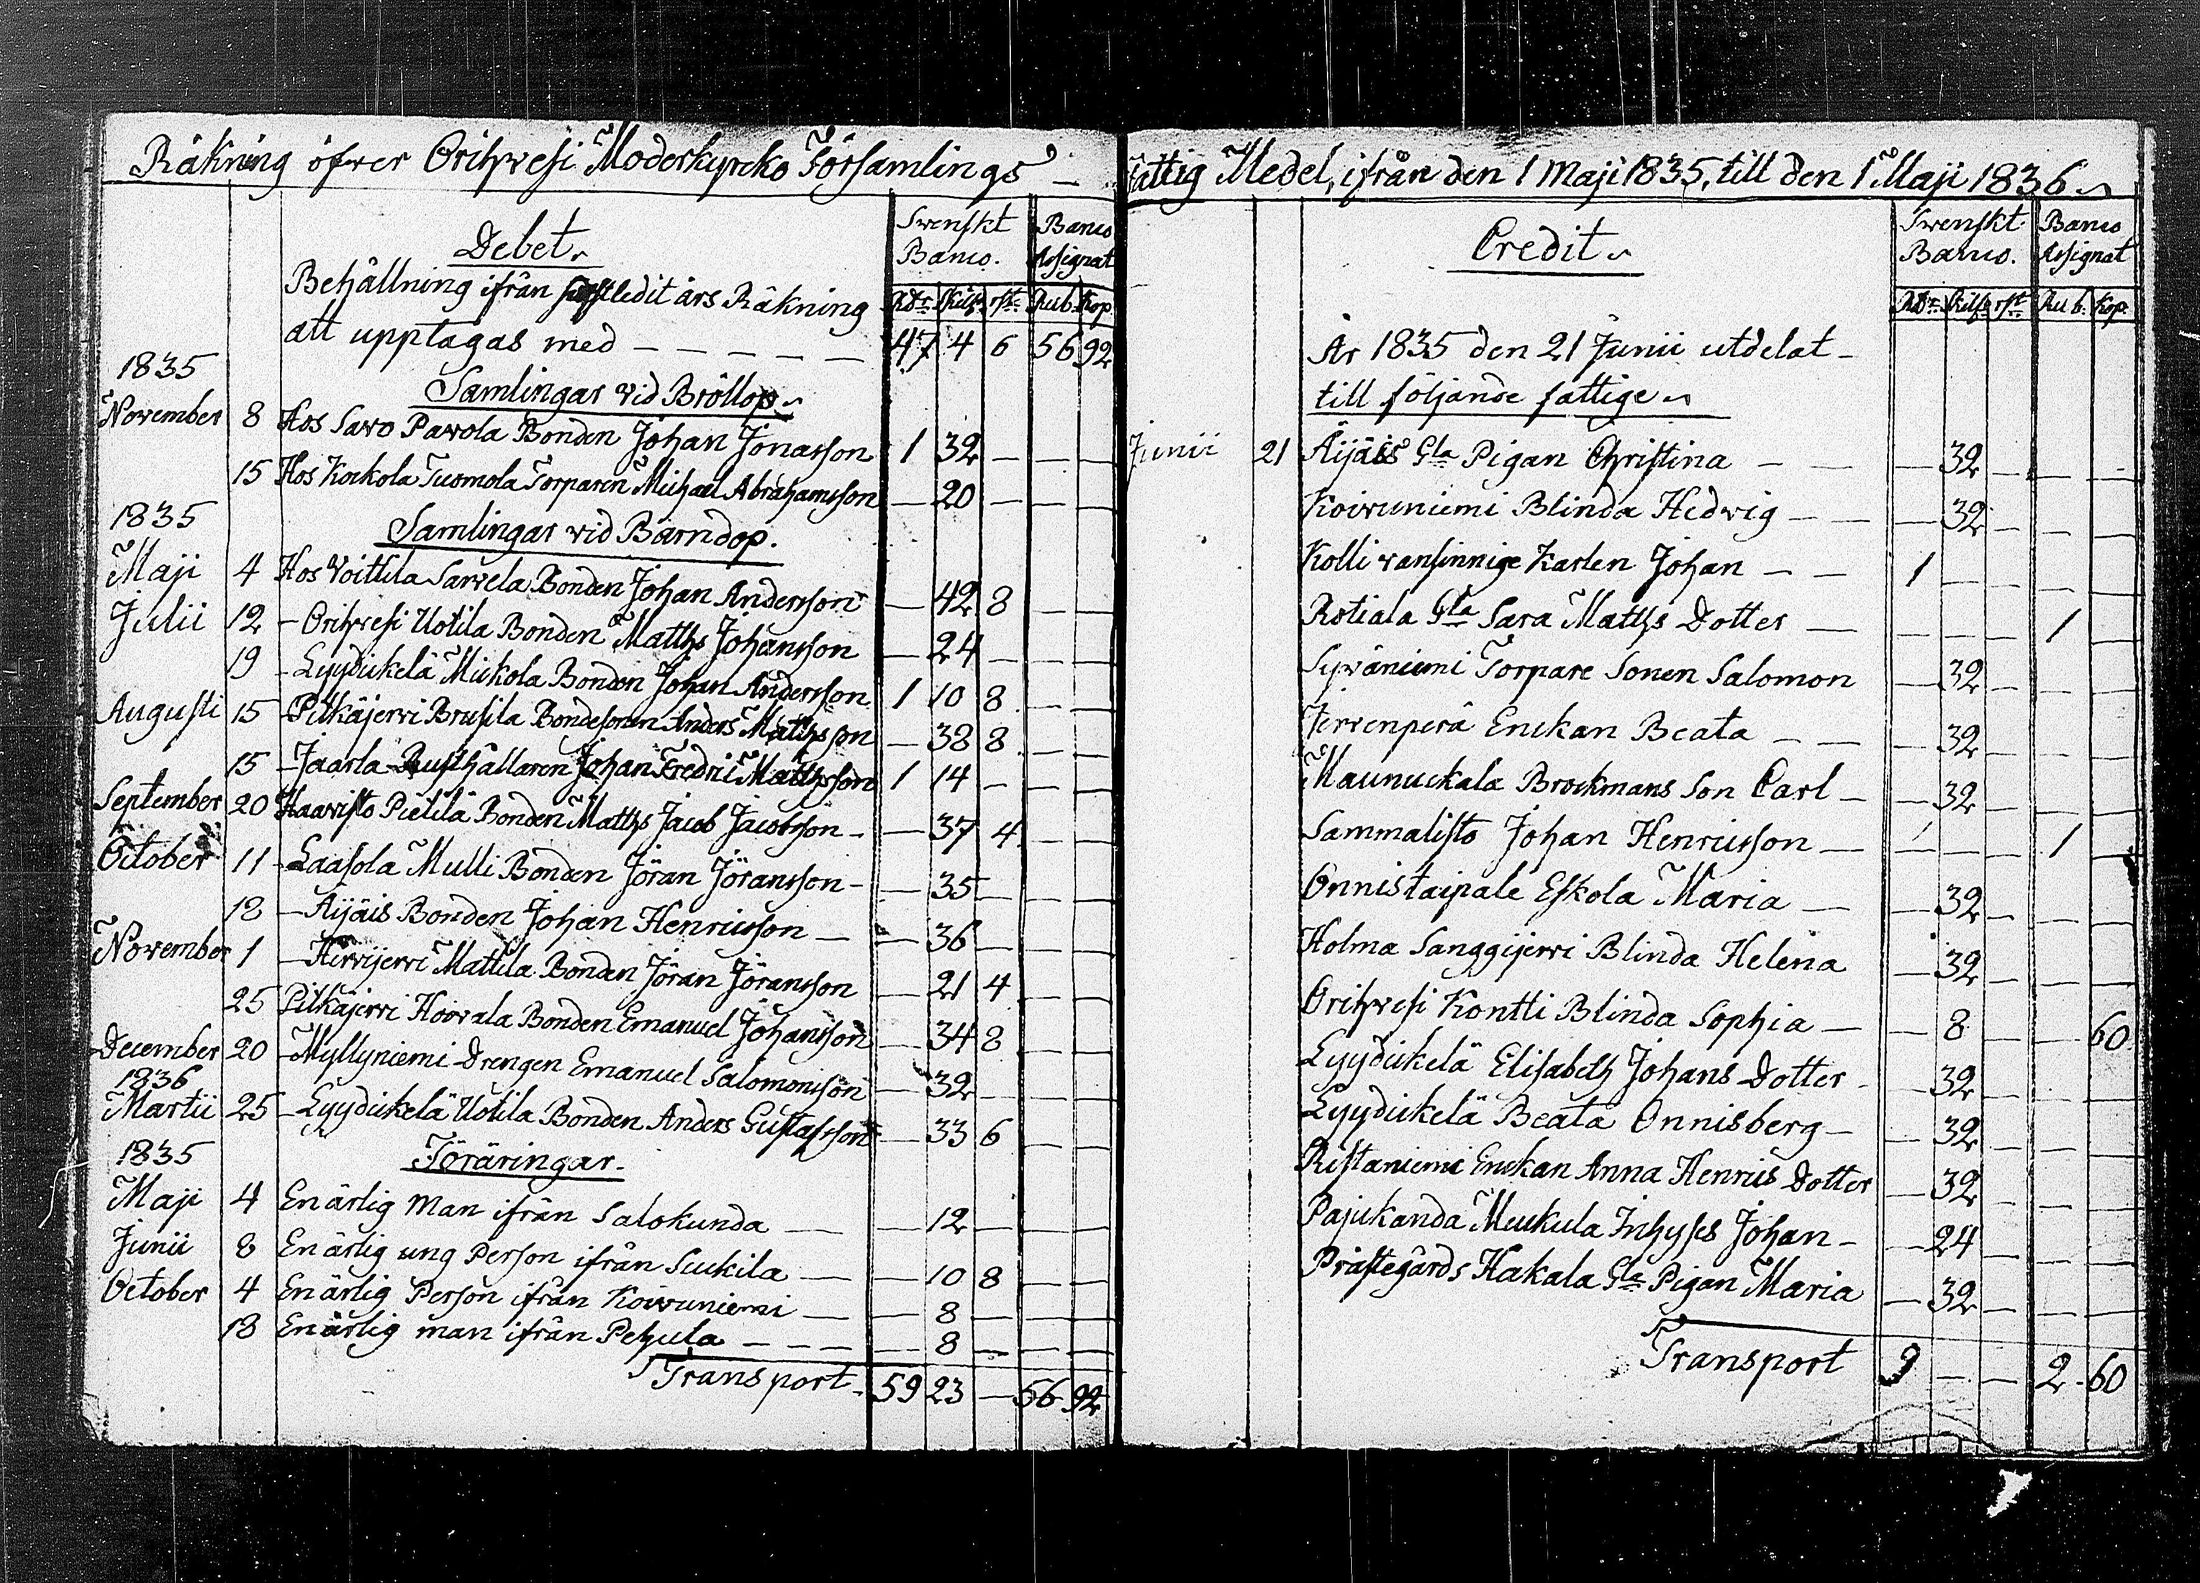 Räkning öfver Orihvesi Moderkyrcko Församlings — Fattig Medel, ifrån den 1 Maji 1835, till den 1 Maji 1836
Debet. Svenskt Banco. Banco Assignat
Rdr Skill. rst. Rub. Kop.
Behållning ifrån sistledit års Räkning
att upptagas med — — — — — 47 4 6 56 92
1835 Samlingar vid Bröllop.
November 8 Hos Savo Pavola Bonden Johan Jonasson 1 32 — — —
15 Hos Kockola Tuomola Torparen Michael Abrahamsson — 20 — — —
1835 Samlingar vid Barndop.
Maji 4 Hos Voittila Sarvela Bonden Johan Andersson — 42 8 — —
Julii 12 — Orihvesi Uotila Bonden Matths Johansson — 24 — — —
19 — Lyydickelä Mickola Bonden Johan Andersson 1 10 8 — —
Augusti 15 — Pitkäjervi Brusila Bondesonen Anders Mathsson — 38 8 — —
15 — Jaarla Rusthållaren Johan Fredric Matthsson 1 14 — — —
September 20 Haavisto Pietilä Bonden Matths Jacob Jacobsson — — 37 4 — —
October 11 — Laasola Mulli Bonden Jöran Jöransson — — 35 — — —
18 — Äijäis Bonden Johan Henricsson — — 36 — — —
November 1 — Hirvijervi Mattila Bonden Jöran Jöransson — 21 4 — —
25 Pitkäjervi Hoovala Bonden Emanuel Johansson — 34 8 — —
December 20 — Myllyniemi Drengen Emanuel Salomonsson — 32 — — —
1836
Martii 25 — Lyydickelä Uotila Bonden Anders Gustafsson — 33 6 — —
1835 Föräringar.
Maji 4 En ärlig Man ifrån Salokunda — — 12 — — —
Junii 8 En ärlig ung Person ifrån Suckila — — 10 8 — —
October 4 En ärlig Person ifrån Koivuniemi — — 8 — — —
18 En ärlig man ifrån Pehula — — — — 8 — — —
Transport. 59 23 — 56 92
Credit Svenskt Banco. Banco Assignat
Rdr Skill. rst. Rub. Kop.
År 1835 den 21 Junii utdelat —
till följande fattige
Junii 21 Äijäis Gla Pigan Christina — — — 32 — — —
Koivuniemi Blinda Hedvig — — — 32 — — —
Kolli vansinnige Karlen Johan — — 1 — — — —
Rotiala Gla Sara Maths Dotter — — — — 1 —
Syväniemi Torpare Sonen Salomon — 32 — — —
Jervenperä Enckan Beata — — — 32 — — —
Maunuckala Brockmans Son Carl — — 32 — — —
Sammalisto Johan Henricsson — — — — 1 —
Onnistaipale Eskola Maria — — 32 — — —
Holma Sanggijervi Blinda Helena — 32 — — —
Orihvesi Kontti Blinda Sophia — — 8 — — 60
Lyydickelä Elisabeth Johans Dotter — — 32 — — —
Lyydickelä Beata Onnisberg — — 32 — — —
Ristaniemi Enckan Anna Henrics Dotter — 32 — — —
Pajukanda Muckula Inhyses Johan — — 24 — — —
Prästegårds Hakala Gla Pigan Maria — 32 — — —
Transport 9 — — 2 60